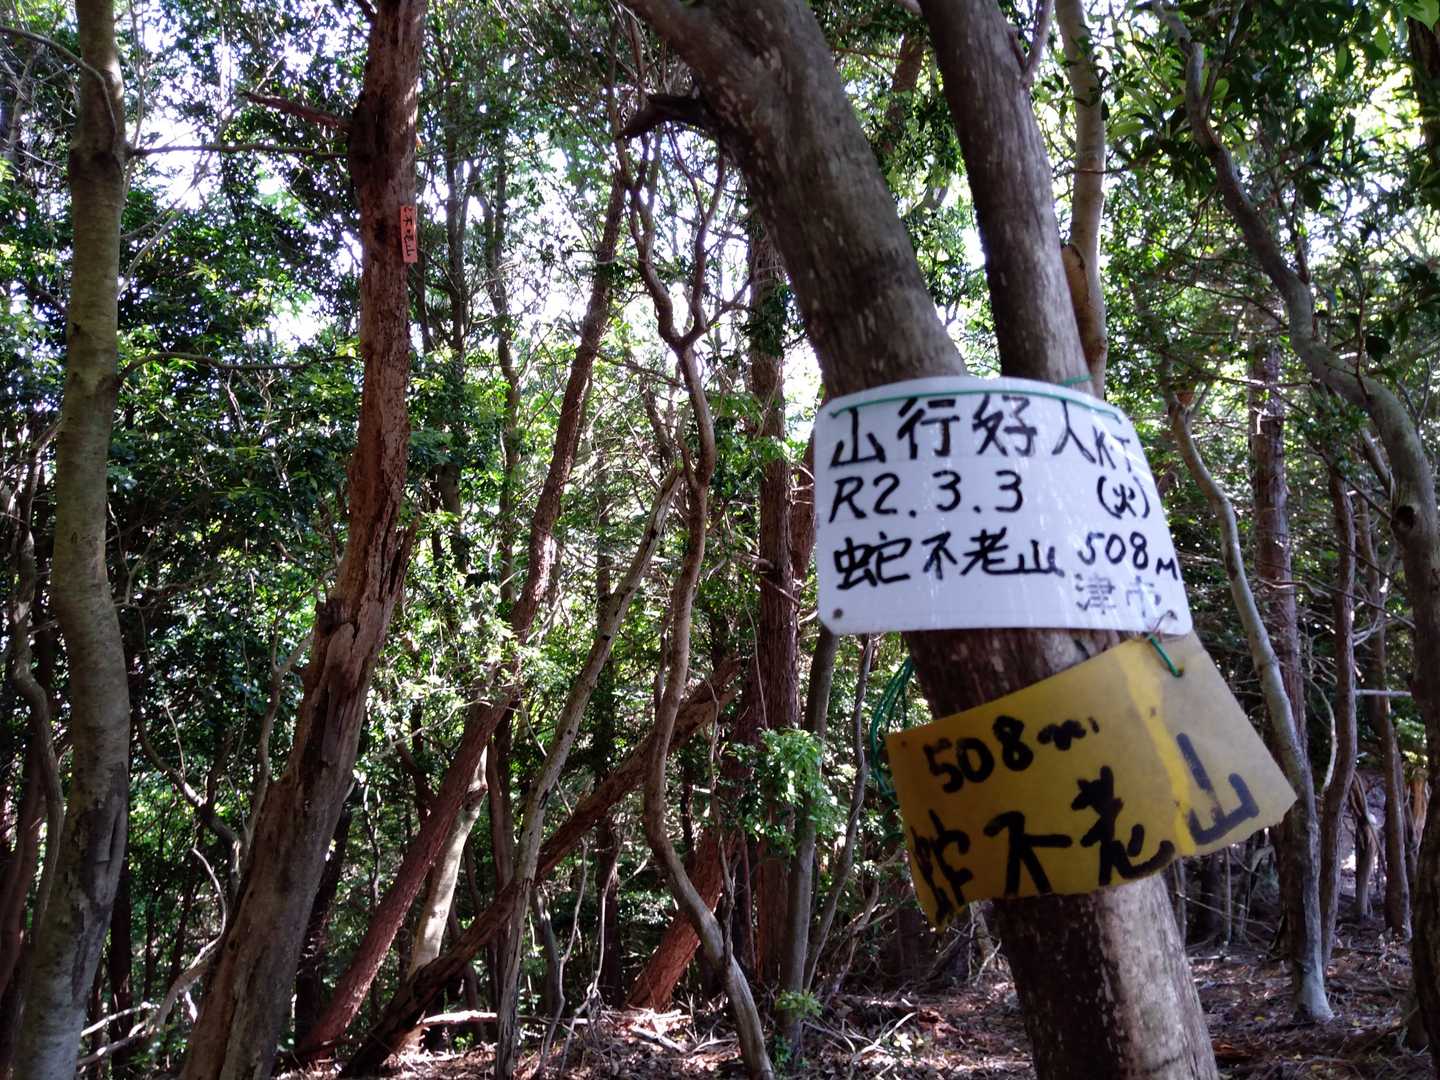 山行好人KT
R2.3.3 (火)
蛇不老山 508M
津市
508m
蛇不老山
不老山